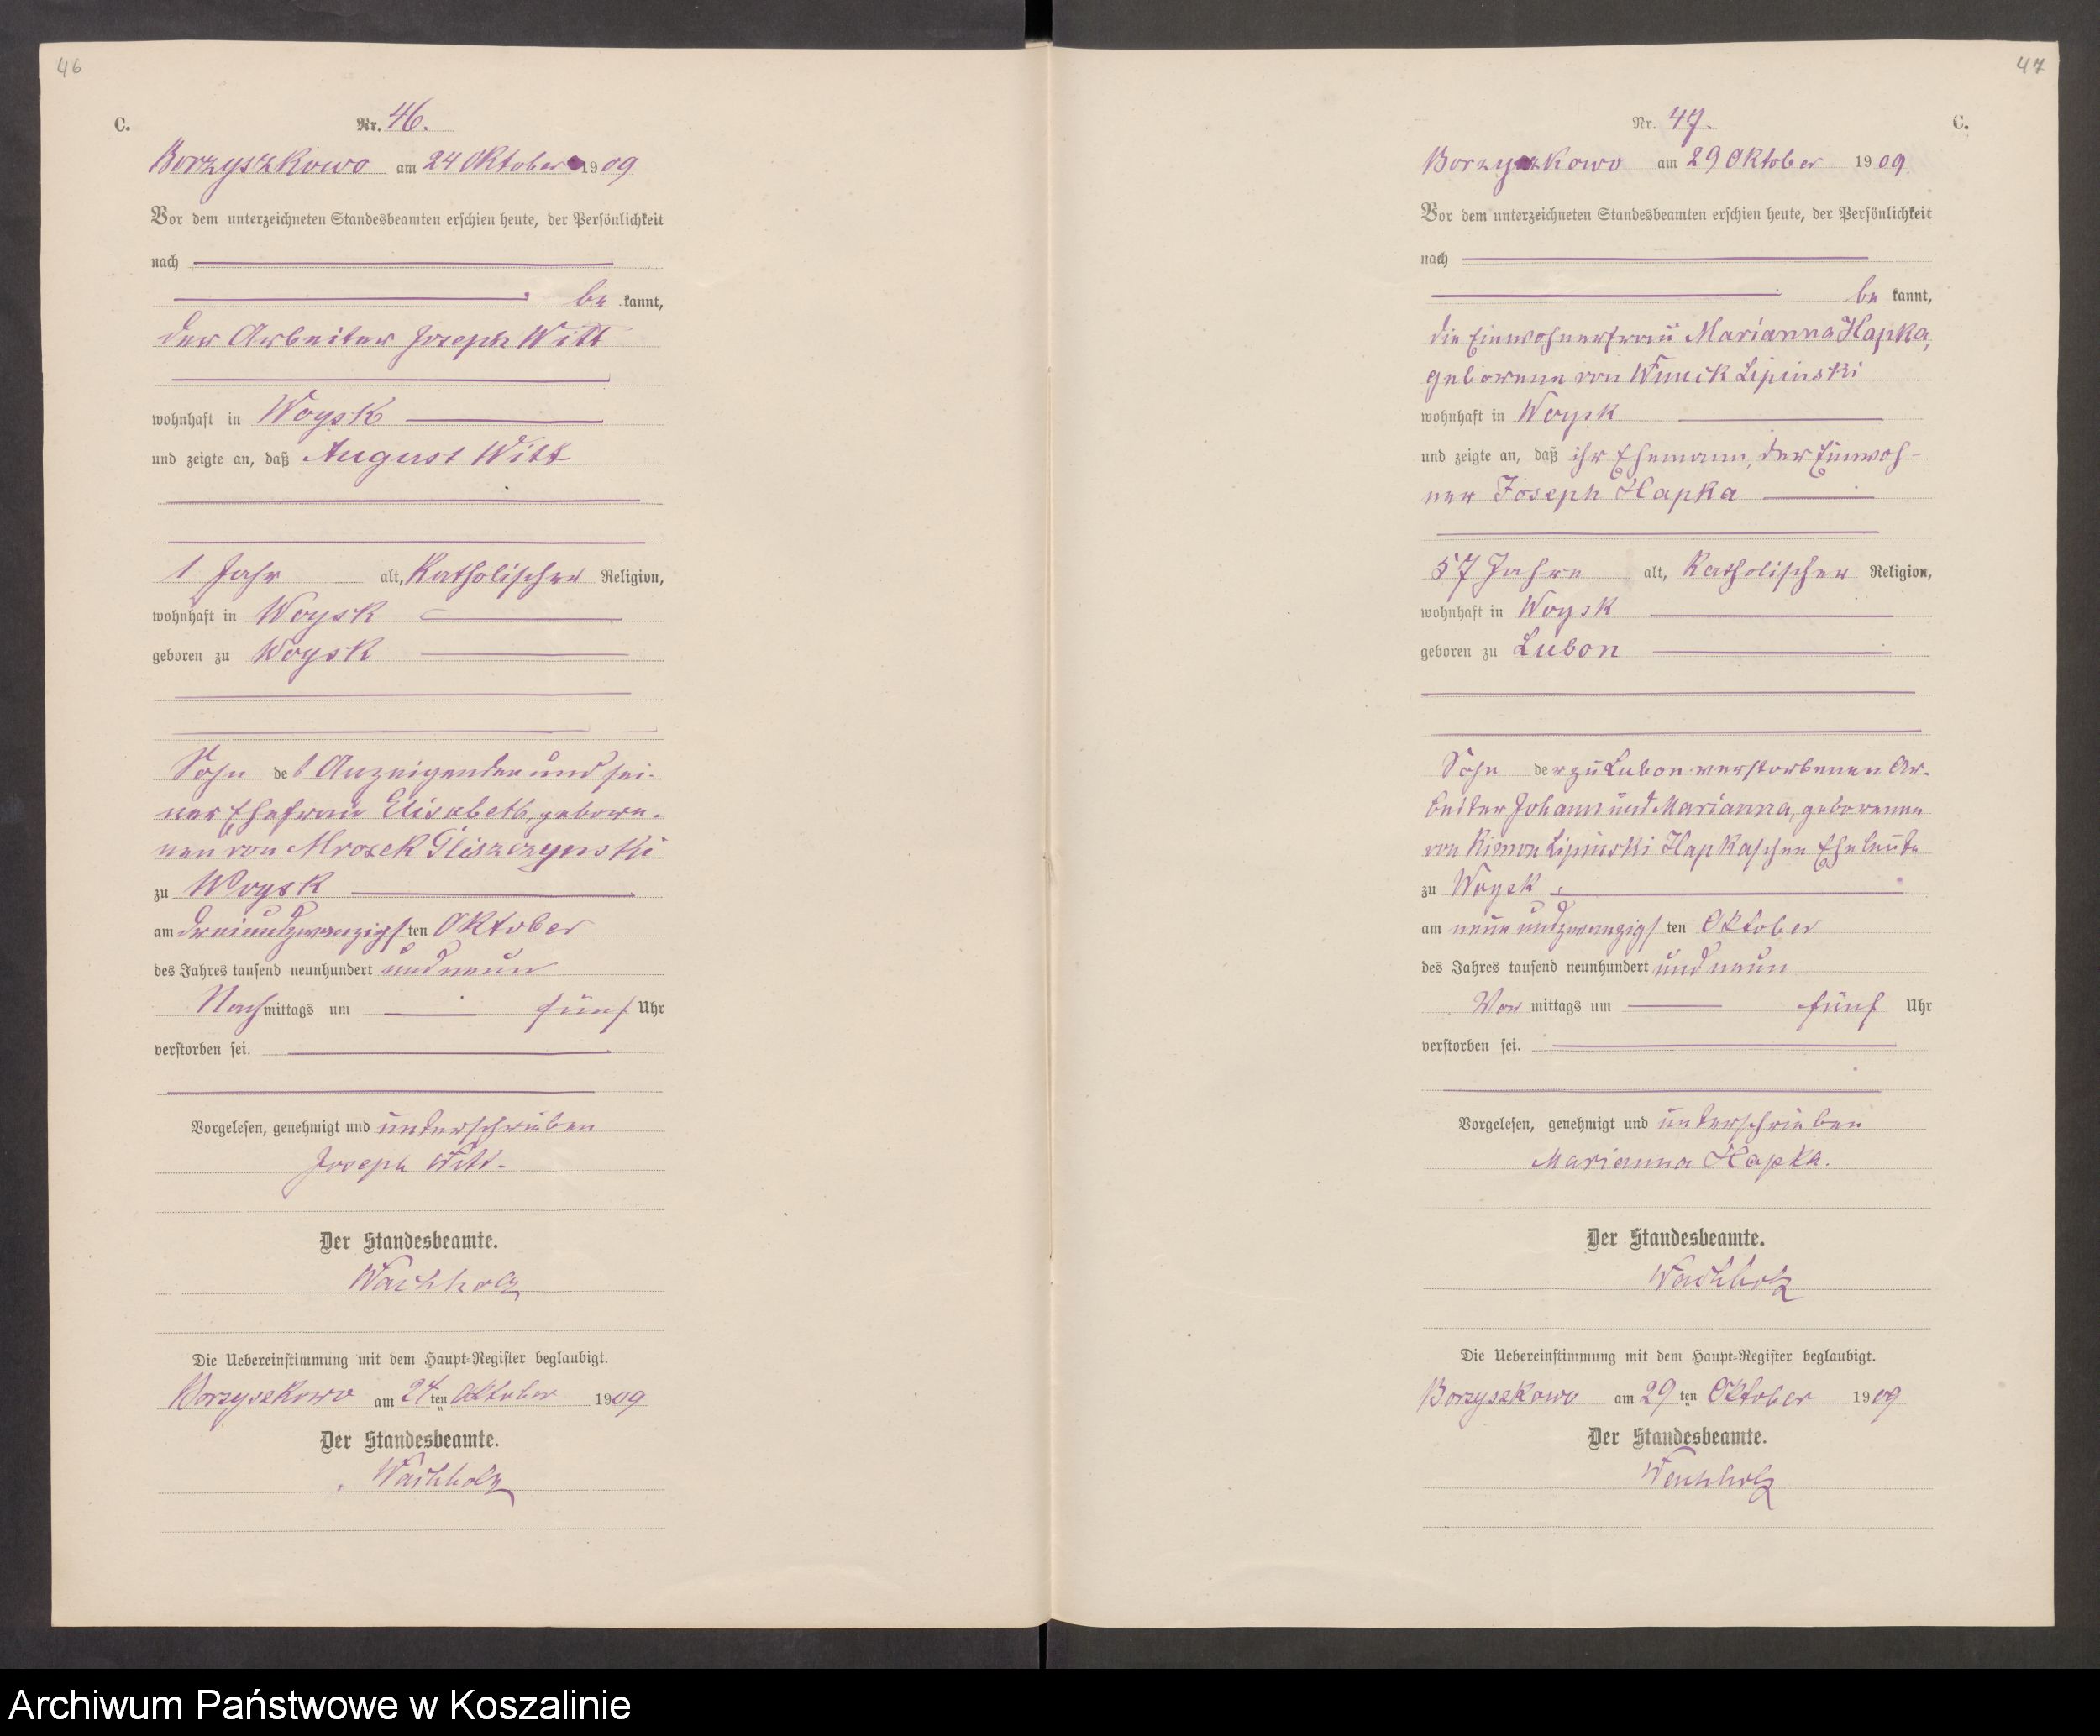 46
C.
Nr. 46.
Borzyszkowo am 24 Oktober 1909
Vor dem unterzeichneten Standesbeamten erschien heute, der Persönlichkeit
nach
be kannt,
der Arbeiter Joseph Witt
wohnhaft in Woysk
und zeigte an, daß August Witt
1 Jahr alt, Katholischer Religion,
wohnhaft in Woysk
geboren zu Woysk
Sohn des Anzeigenden und sei-
ner Ehefrau Elisabeth, gebore-
nen von Mrosek Gliszczynski
zu Woysk
am dreiundzwanzigsten Oktober
des Jahres tausend neunhundert und neun
Nachmittags um fünf Uhr
verstorben sei.
Vorgelesen, genehmigt und unterschrieben
Joseph Witt.
Der Standesbeamte.
Wachholz
Die Uebereinstimmung mit dem Haupt-Register beglaubigt.
Borzyszkowo am 24 ten Oktober 1909
Der Standesbeamte.
Wachholz
47
Nr. 47.
C.
Borzyszkowo am 29 Oktober 1909
Vor dem unterzeichneten Standesbeamten erschien heute, der Persönlichkeit
nach
be kannt,
die Einwohnerfrau Marianna Hapka,
geborene von Wnuck Lipinski
wohnhaft in Woysk
und zeigte an, daß ihr Ehemann, der Einwoh-
ner Joseph Hapka
57 Jahre alt, Katholischer Religion,
wohnhaft in Woysk
geboren zu Lubon
Sohn der zu Lubon verstorbenen Ar-
beiter Johann und Marianna, geborenen
von Lipinski Hapkaschen Eheleute
zu Woysk
am neunundzwanzigsten Oktober
des Jahres tausend neunhundert und neun
Vor mittags um fünf Uhr
verstorben sei.
Vorgelesen, genehmigt und unterschrieben
Marianna Hapka.
Der Standesbeamte.
Wachholz
Die Uebereinstimmung mit dem Haupt-Register beglaubigt.
Borzyszkowo am 29 ten Oktober 1909
Der Standesbeamte.
Wachholz
Archiwum Państwowe w Koszalinie